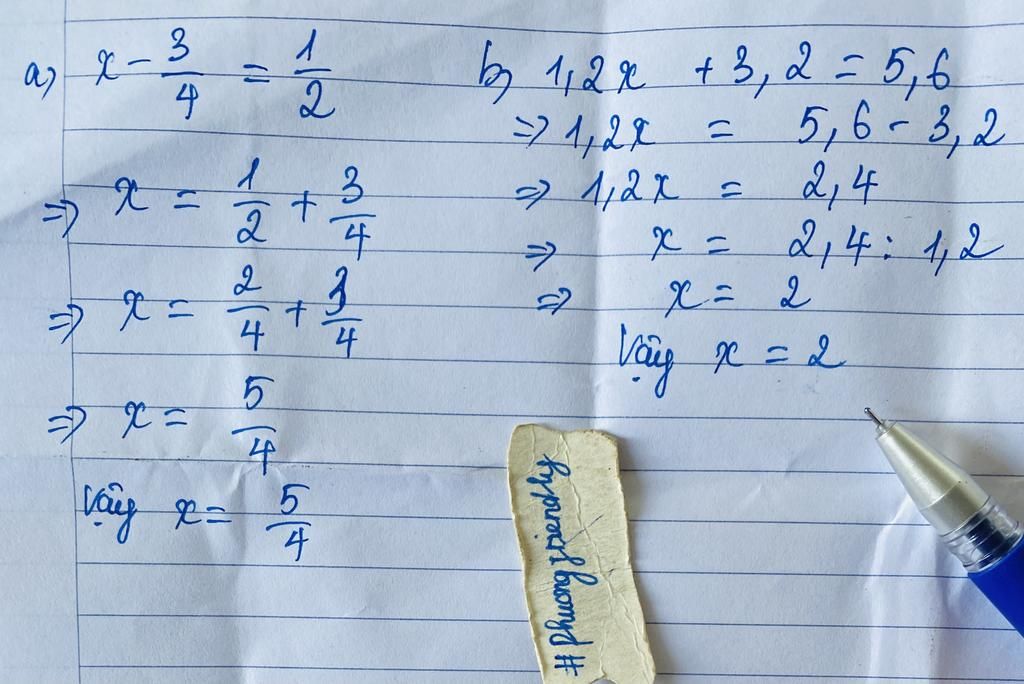 a) x - 3/4 = 1/2
=> x = 1/2 + 3/4
=> x = 2/4 + 3/4
=> x = 5/4
Vậy x = 5/4
b) 1,2x + 3,2 = 5,6
=> 1,2x = 5,6 - 3,2
=> 1,2x = 2,4
=> x = 2,4 : 1,2
=> x = 2
Vậy x = 2
#phuongfriendly